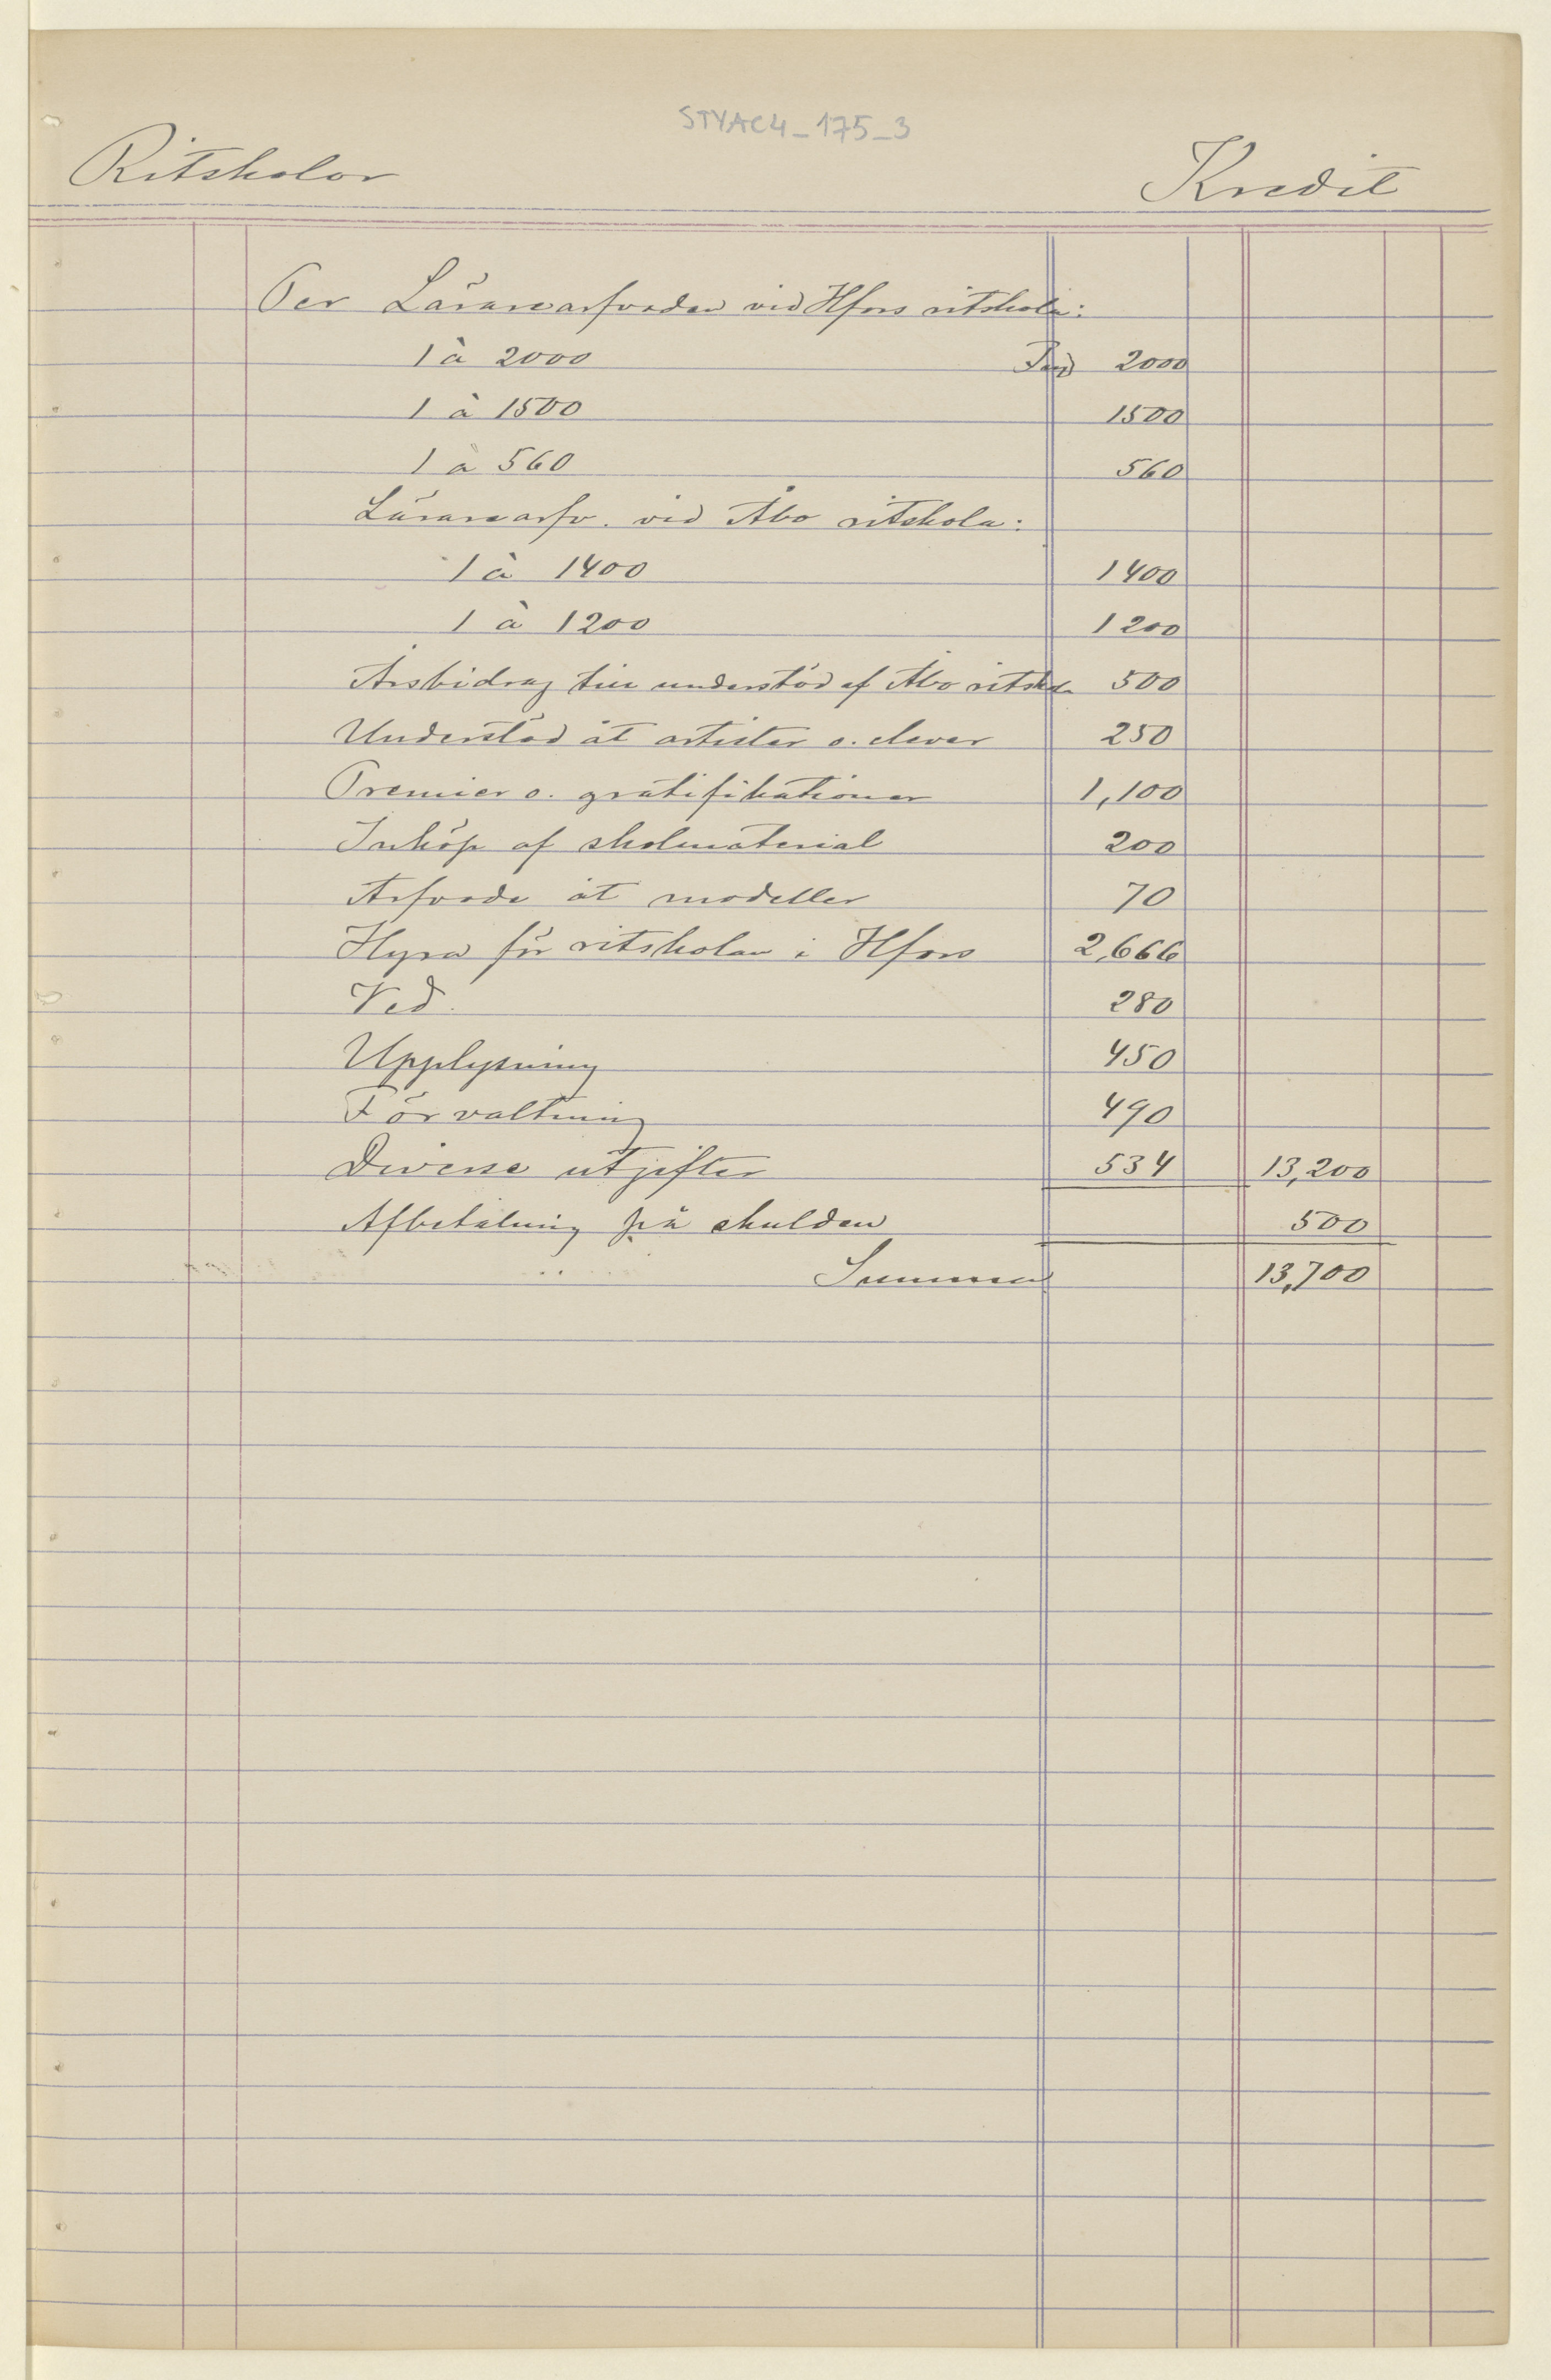 STYAC4_175_3
Ritskolor Kredit
Per Lärarearfvoden vid Hfors ritskola:
1 à 2000 2000
1 à 1500 1500
1 à 560 560
Lärarearfv. vid Åbo ritskola:
1 à 1400 1400
1 à 1200 1200
Årsbidrag till understöd af Åbo ritskola 500
Understöd åt artister o. elever 250
Premier o. gratifikationer 1,100
Inköp af skolmaterial 200
Arfvode åt modeller 70
Hyra för ritskolan i Hfors 2,666
Ved. 280
Upplysning 450
Förvaltning 490
Diverse utgifter 534 13,200
Afbetalning på skulden 500
Summa 13,700